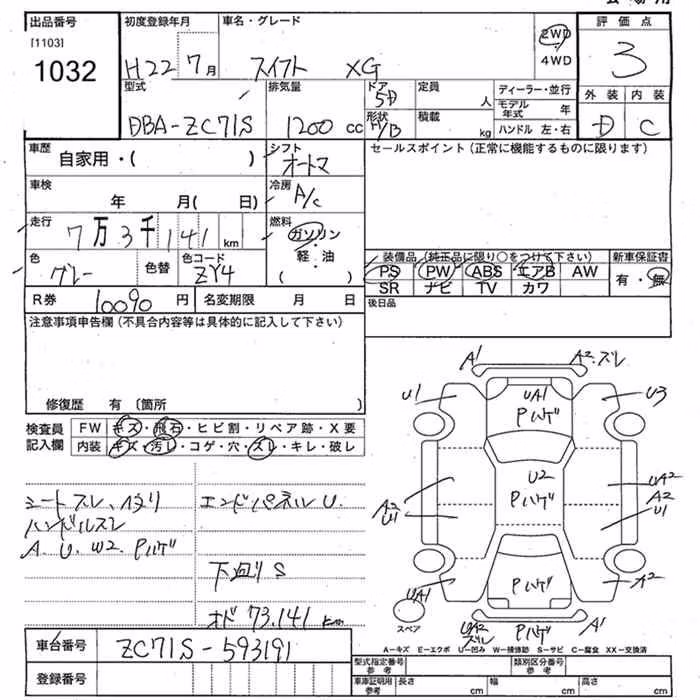 出品番号 初度登録年月 車名・グレード 評価点
[1103]
1032
H22 7月 スイフト XG 2WD 4WD 3
型式 排気量 ドア 定員 ディーラー・並行 外装 内装
DBA-ZC71S 1200 cc 5D 人 モデル年式 年 D C
形状 H/B 積載 kg ハンドル 左・右
車歴 シフト セールスポイント(正常に機能するものに限ります)
自家用・( ) オートマ
車検 冷房
年 月( 日) A/c
走行 燃料
7万3千141 km ガソリン
軽・油
( )
色 色替 色コード 装備品(純正品に限り○をつけて下さい) 新車保証書
グレー ZY4 PS PW ABS エアB AW 有・無
SR ナビ TV カワ
R券 10090 円 名変期限 月 日 後日品
注意事項申告欄(不具合内容等は具体的に記入して下さい)
修復歴 有 (箇所 )
検査員記入欄
FW キズ・飛石・ヒビ割・リペア跡・X要
内装 キズ・汚レ・コゲ・穴・スレ・キレ・破レ
シートスレ、ヘタリ エンドパネルU.
ハンドルスレ
A. U. W2. Pハゲ
下廻りS
オド 73,141 km
A1 A2.ズレ
U1 UA1 Pハゲ U3
A2 U1 U2 Pハゲ UA2 A2 U1
UA1 Pハゲ A2
スペア UA2 ズレ Pハゲ A1
A-キズ E-エクボ U-凹み W-補修跡 S-サビ C-腐食 XX-交換済
車台番号 ZC71S-593191
登録番号
型式指定番号 参考 類別区分番号 参考
車庫証明用 参考 長さ cm 幅 cm 高さ cm